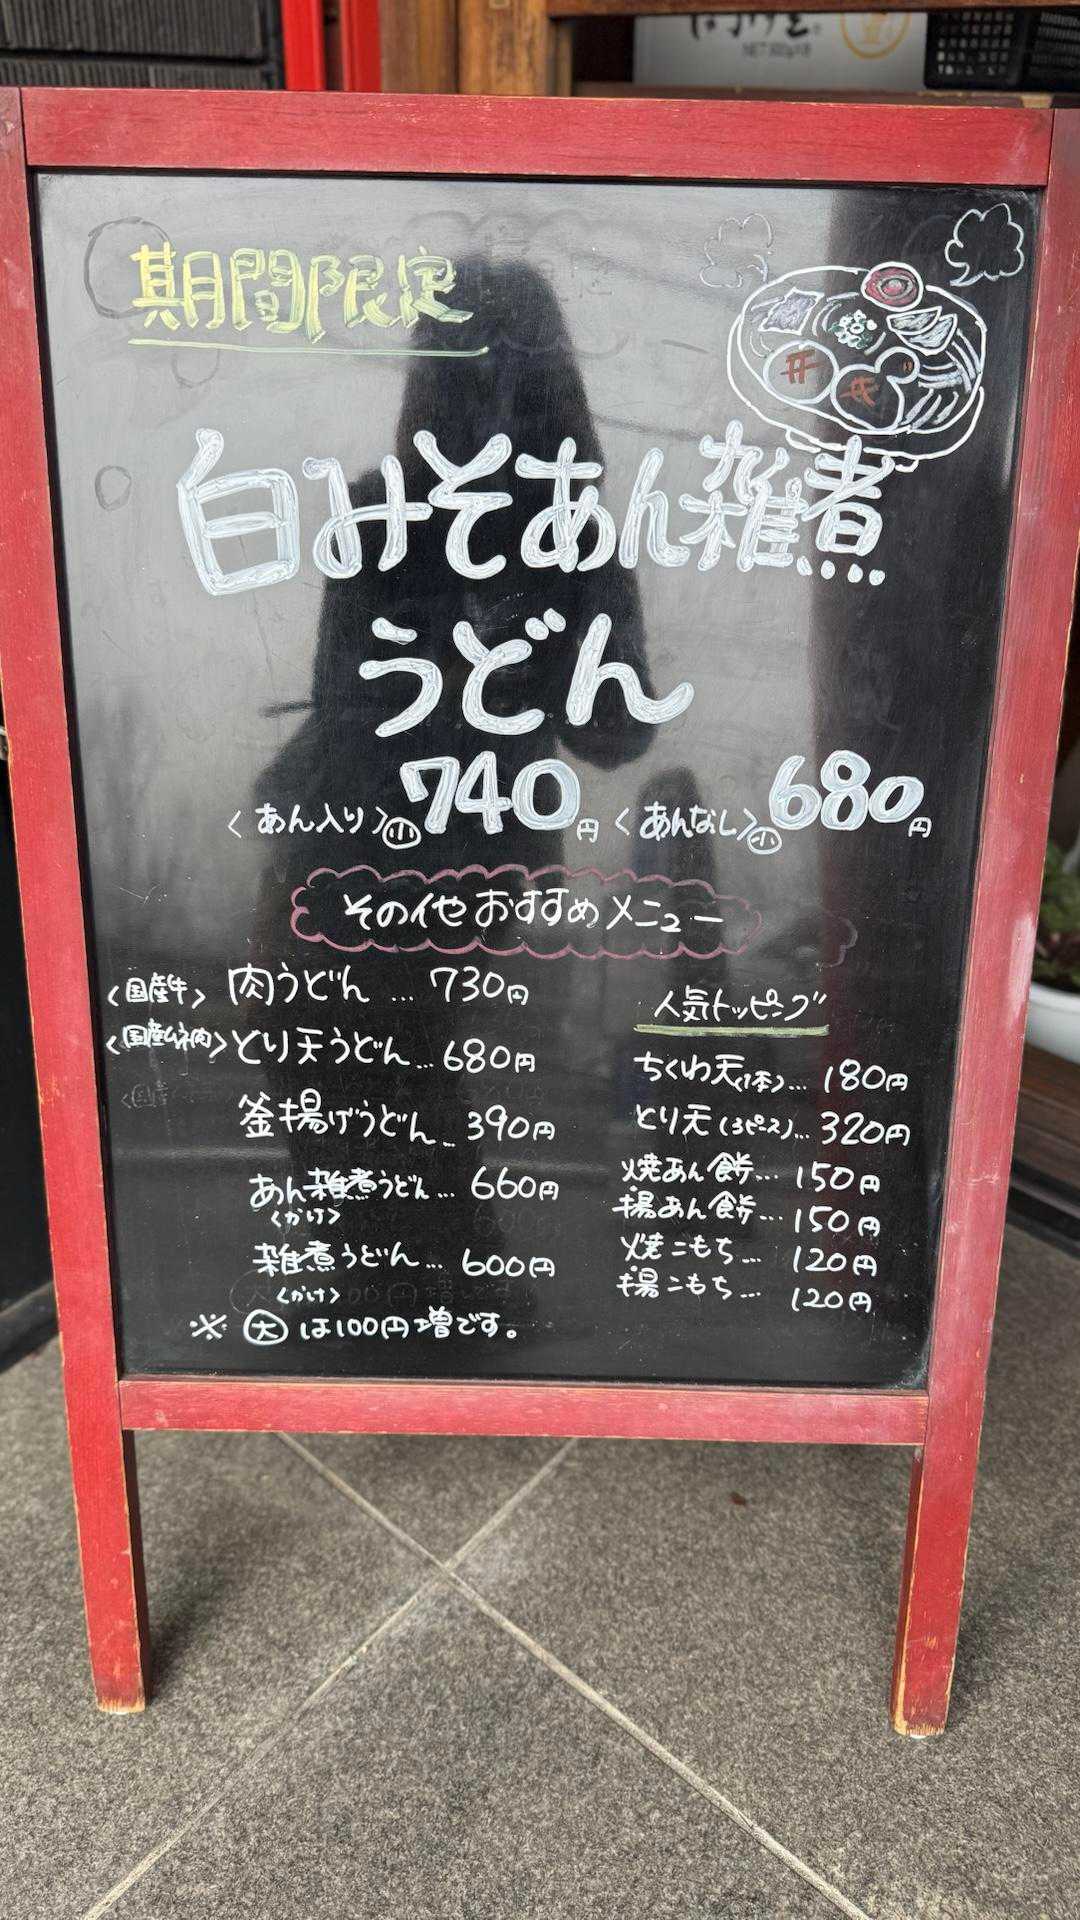 NET 900g×8
期間限定
白みそあん雑煮
うどん
〈あん入り〉小 740円 〈あんなし〉小 680円
その他おすすめメニュー
〈国産牛〉 肉うどん … 730円
〈国産ムネ肉〉 とり天うどん … 680円
釜揚げうどん … 390円
あん雑煮うどん … 660円
〈かけ〉
雑煮うどん … 600円
〈かけ〉
※ 大 は100円増です。
人気トッピング
ちくわ天(1本)… 180円
とり天(3ピース)… 320円
焼あん餅… 150円
揚あん餅… 150円
焼こもち… 120円
揚こもち… 120円